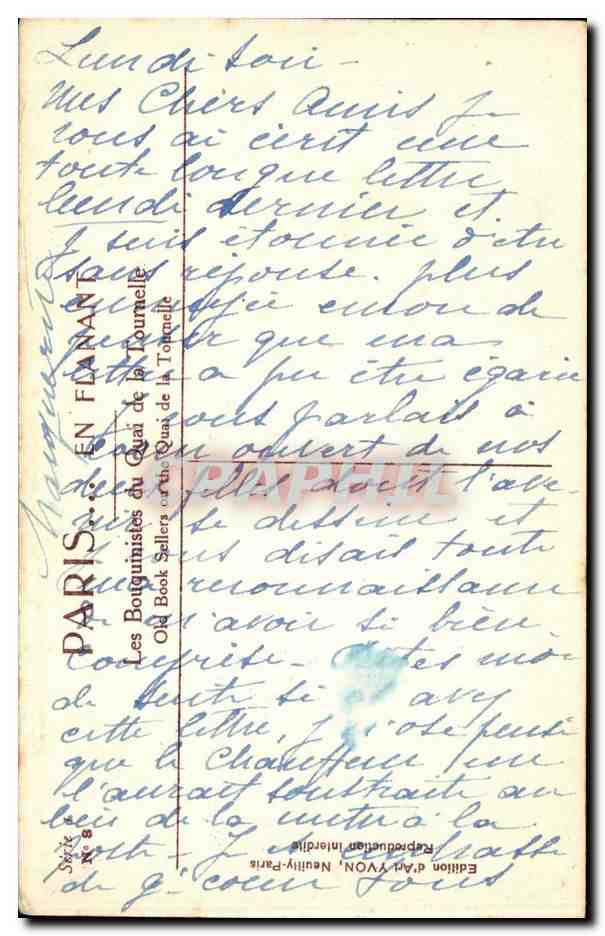 Lundi soir -
Mes Chers Amis je
vous ai écrit une
toute longue lettre
lundi dernier et
je suis étonnée d'être
sans réponse. plus
ennuyée encore de
penser que ma
lettre a pu être égarée
Je vous parlais à
coeur ouvert de nos
deux filles dont l'ave
nir se dessine et
je vous disais toute
ma reconnaissance
de m'avoir si bien
comprise - Dites moi
de suite si avez
cette lettre, je n'ose penser
que le Chauffeur
l'aurait soustraite au
lieu de la mettre à la
poste. Je embrasse
de gd coeur tous
Marguerite
PARIS.... EN FLANANT
Les Bouquinistes du Quai de la Tournelle
Old Book Sellers on the Quai de la Tournelle
Série
N° 8
Edition d'Art YVON, Neuilly-Paris
Reproduction Interdite
CPAPHIL